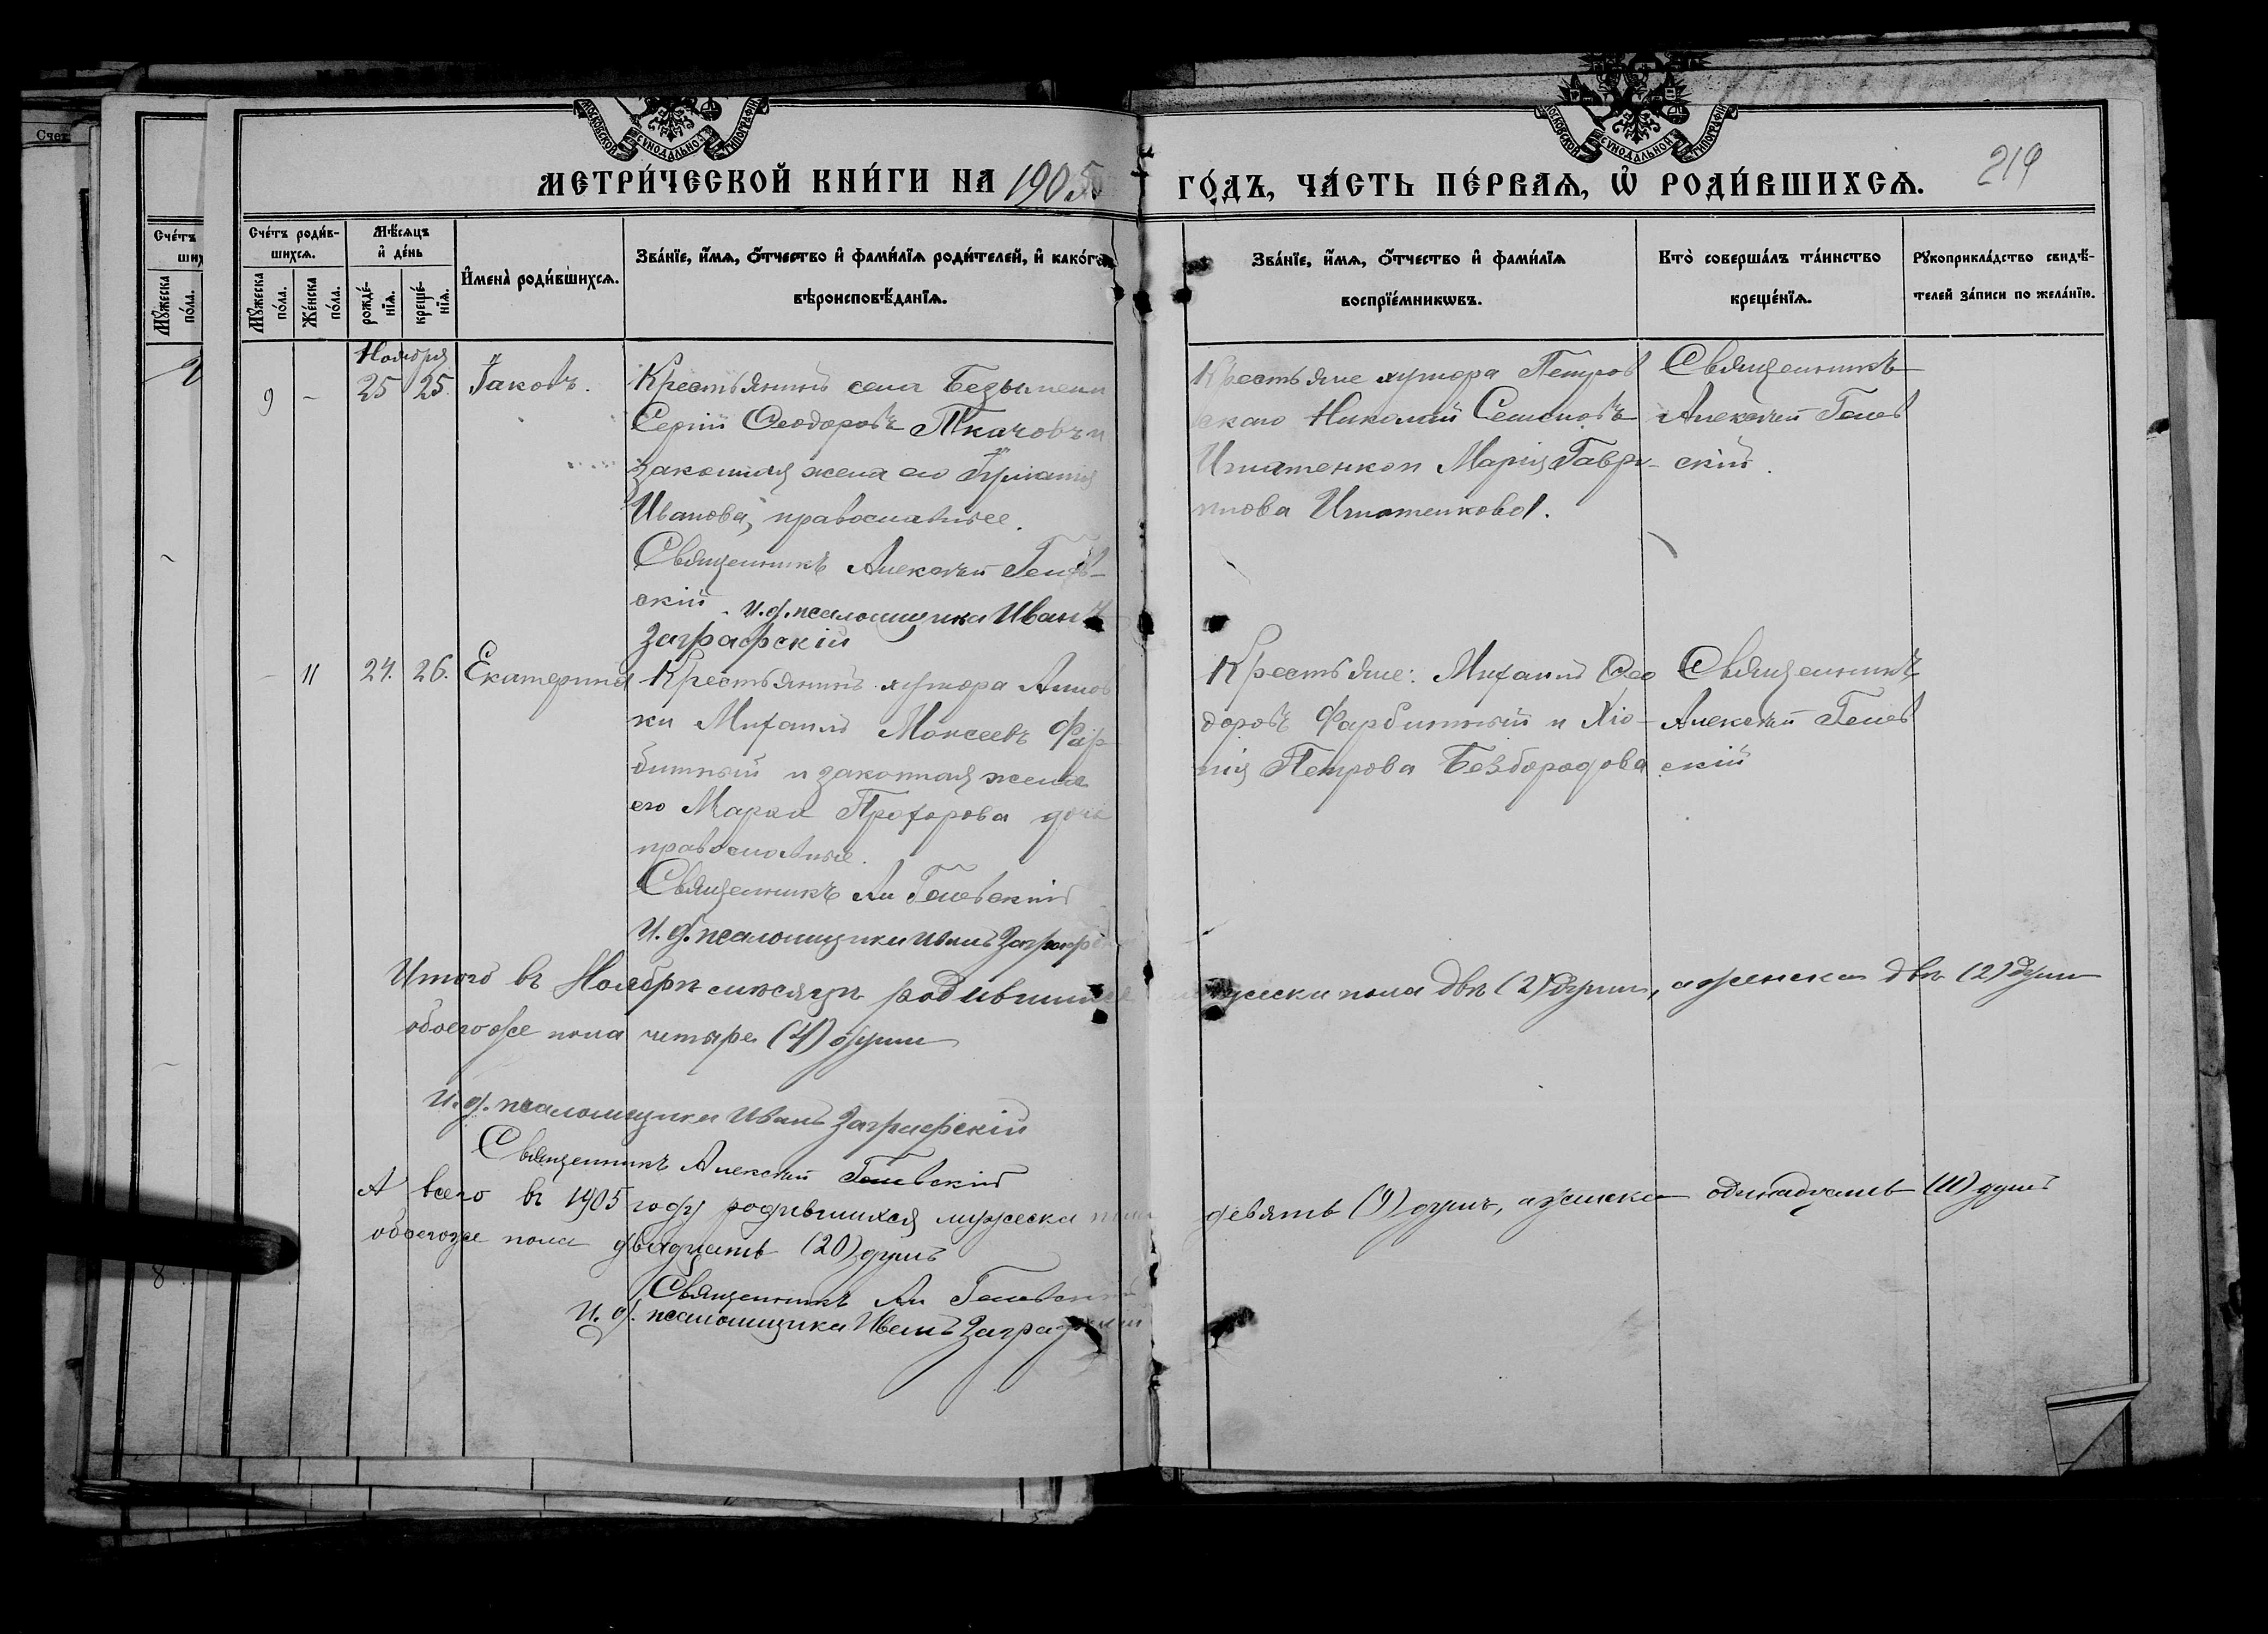 МЕТРИ́ЧЕСКОЙ КНИ́ГИ НА 1905 ГО́ДЪ, ЧА́СТЬ ПЕ́РВАЯ, Ѡ҆ РОДИ́ВШИХСЯ.
219
Сче́тъ роди́в-
шихся.
Мѣ́сяцъ
и҆ де́нь
И҆мена̀ роди́вшихся.
Зва́нїе, и҆́мя, ѻ҆́тчество и҆ фами́лїя роди́телей, и҆ како́гѡ
вѣроисповѣ́данїя.
Зва́нїе, и҆́мя, ѻ҆́тчество и҆ фами́лїя
воспрїе́мникѡвъ.
Кто̀ соверша́лъ та́инство
креще́нїя.
Рꙋкоприкла́дство свидѣ́-
телей за́писи по жела́нїю.
Мꙋ́жеска
по́ла.
Же́нска
по́ла.
рожде́-
нїя.
креще́-
нїя.
Ноября
9 - 25 25 Іаковъ.
Крестьянинъ села Безымен
Сергій Ѳеодоровъ Ткачовъ и
законная жена его
Иванова, православные.
Священникъ Алексѣй Гаев-
скій. И. д. псаломщика Иванъ
Заграфскій
Крестьяне хутора Петров
скаго Николай Семеновъ
Игнатенко и Марія Гаври-
лова Игнатенкова.
Священникъ
Алексѣй Гаев
скій.
- 11 24. 26. Екатерина
Крестьянинъ хутора Аннов
ки Михаилъ Моисеевъ Фар
битный и законная жена
его Марѳа Прохорова
православные.
Священникъ Ал Гаевскій
И. д. псаломщика Иванъ Заграф
Крестьяне: Михаилъ Ѳео
доровъ Фарбитный и Хіо-
нія Петрова Безбородова
Священникъ
Алексѣй Гаев
скій
Итого въ Ноябрѣ мѣсяцѣ родившихся мужеска пола двѣ (2) души, а женска двѣ (2) души
обоего же пола четыре (4) души
И. д. псаломщика Иванъ Заграфскій
Священникъ Алексѣй Гаевскій
А всего въ 1905 году родившихся мужеска пола девять (9) душъ, а женска одинадцать (11) душъ
обоего же пола двадцать (20) душъ
Священникъ Ал Гаевскій
И. д. псаломщика Иванъ Заграфскій